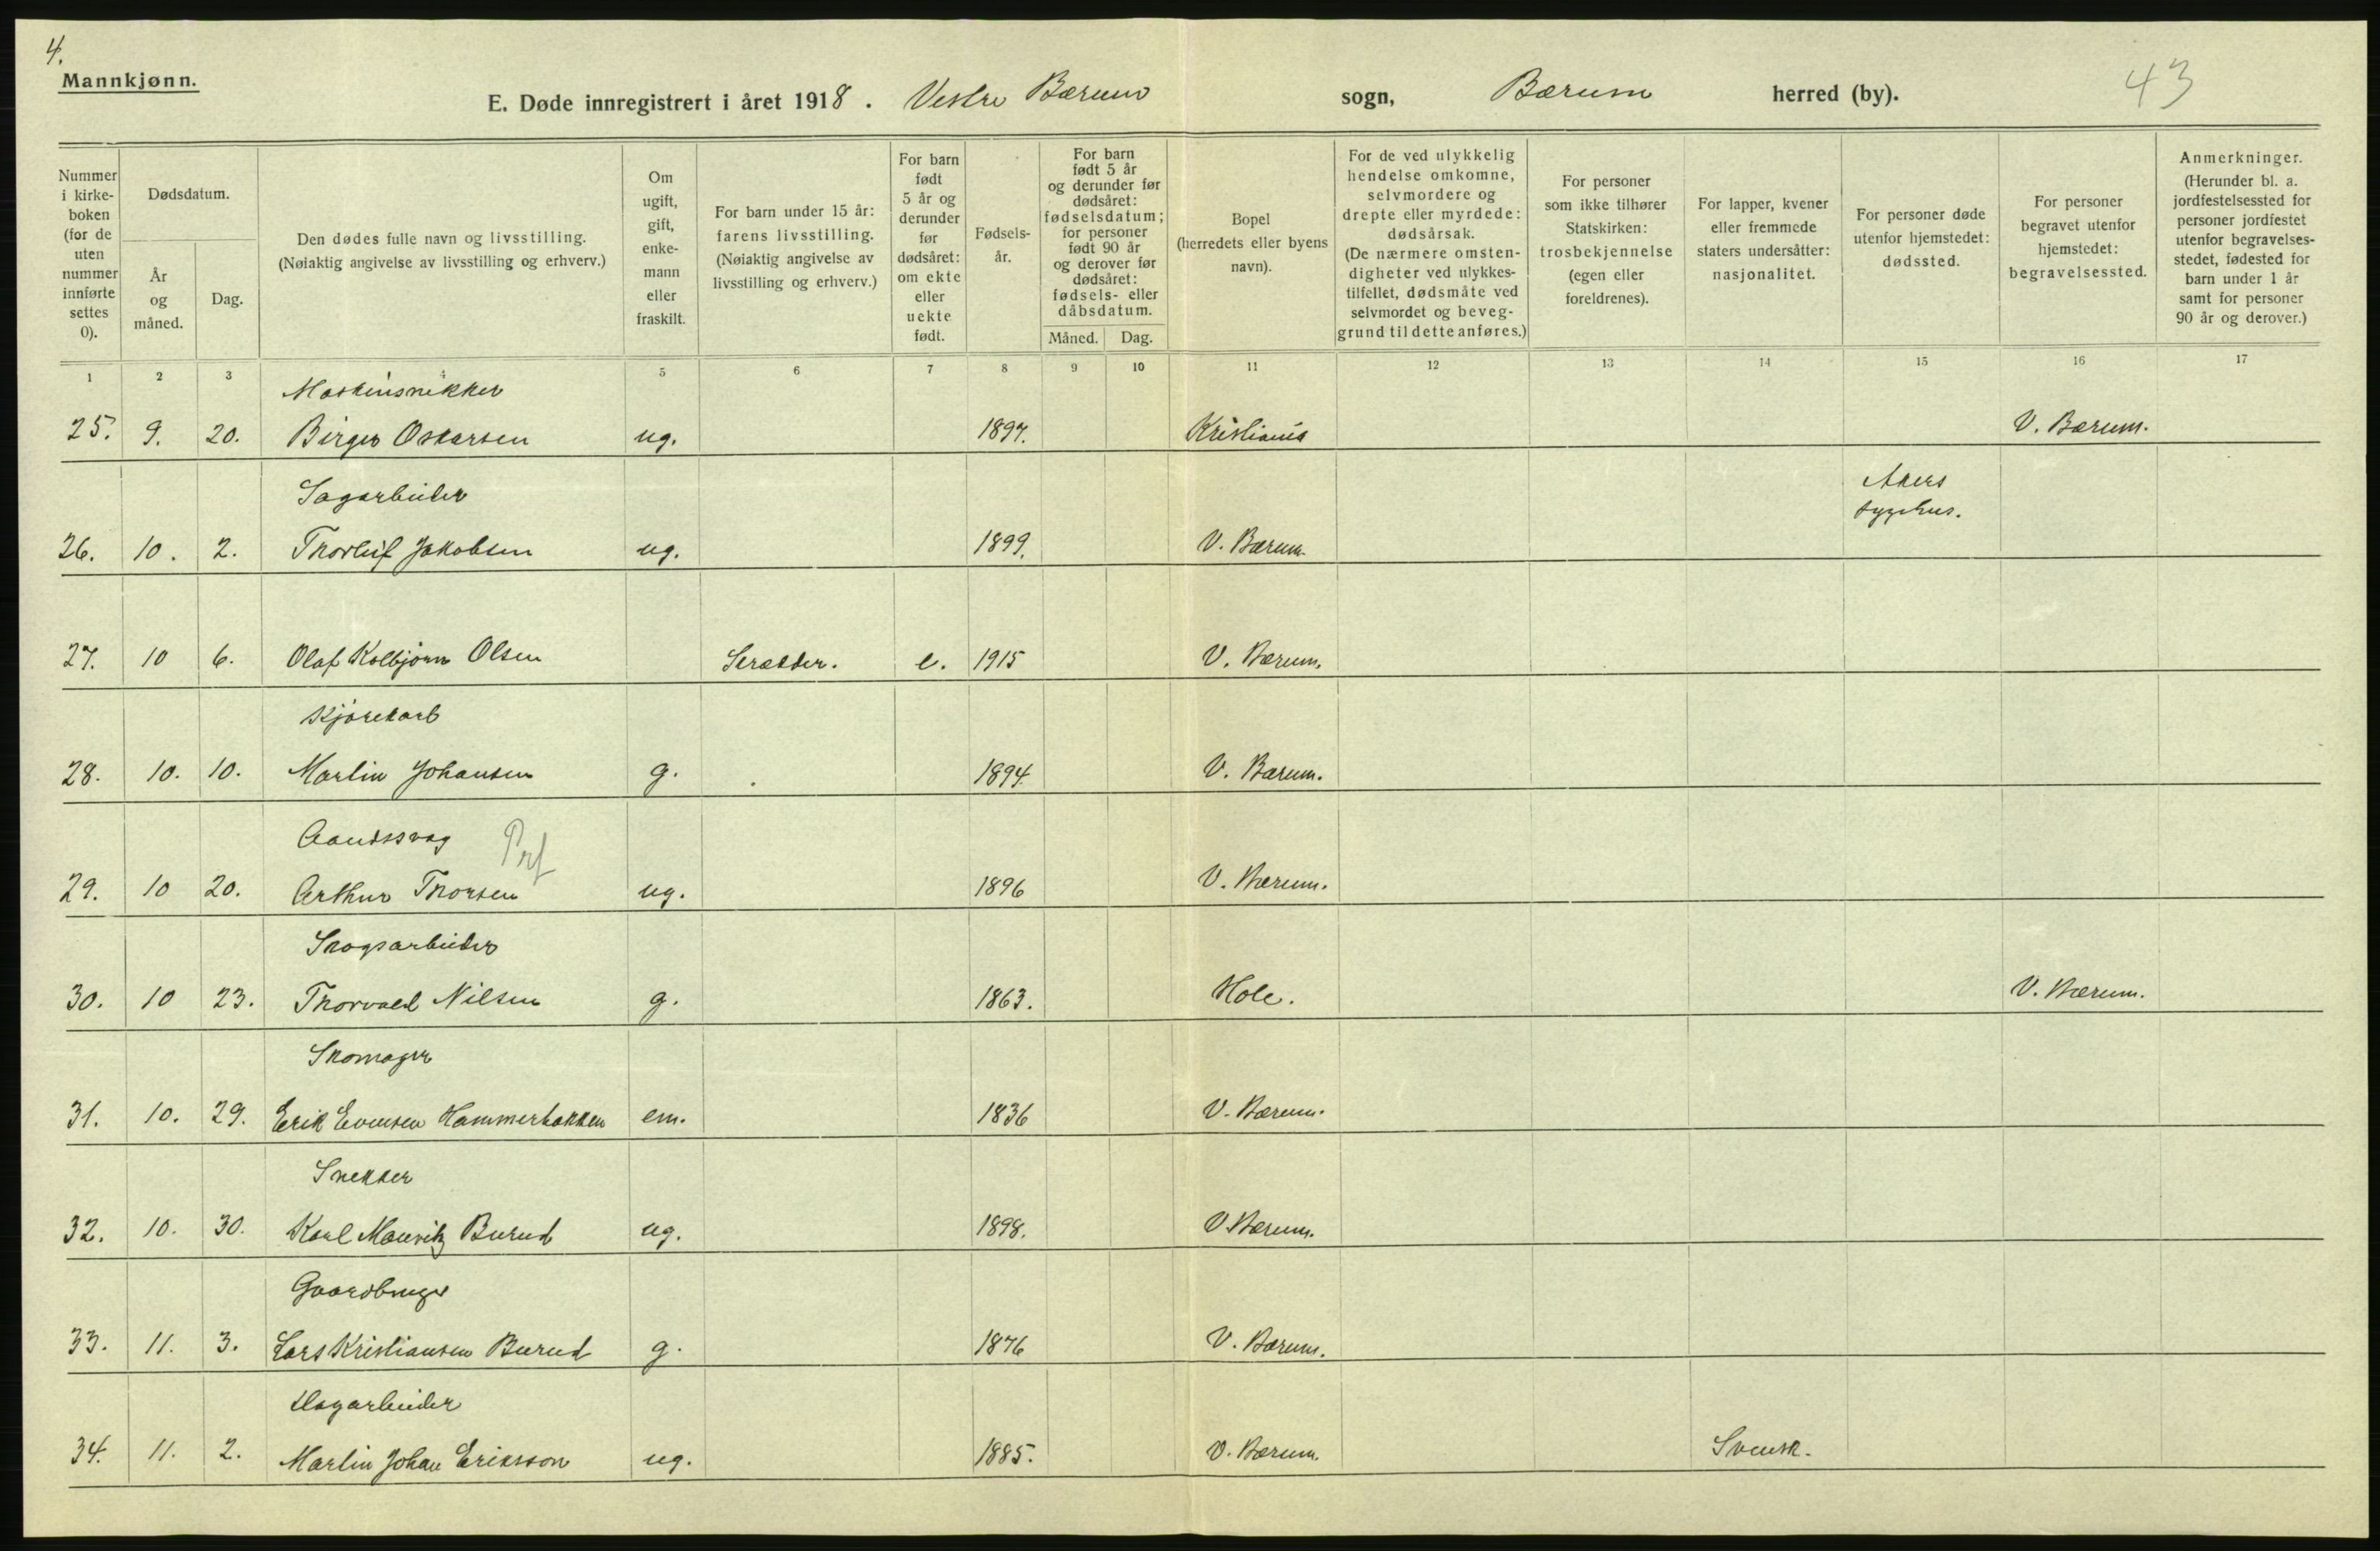 4.
Mannkjønn.
E. Døde innregistrert i året 1918. Vestre Bærum sogn, Bærum herred (by).
43
Nummer i kirke- boken (for de uten nummer innførte settes 0).
Dødsdatum.
År og måned.
Dag.
Den dødes fulle navn og livsstilling.
(Nøiaktig angivelse av livsstilling og erhverv.)
Om ugift, gift, enke- mann eller fraskilt.
For barn under 15 år: farens livsstilling. (Nøiaktig angivelse av livsstilling og erhverv.)
For barn født 5 år og derunder før dødsåret: om ekte eller uekte født.
Fødsels- år.
For barn født 5 år og derunder før dødsåret: fødselsdatum; for personer født 90 år og derover før dødsåret: fødsels- eller dåbsdatum.
Måned.
Dag.
Bopel (herredets eller byens navn).
For de ved ulykkelig hendelse omkomne, selvmordere og drepte eller myrdede: dødsårsak. (De nærmere omsten- digheter ved ulykkes- tilfellet, dødsmåte ved selvmordet og beveg- grund til dette anføres.)
For personer som ikke tilhører Statskirken: trosbekjennelse (egen eller foreldrenes).
For lapper, kvener eller fremmede staters undersåtter: nasjonalitet.
For personer døde utenfor hjemstedet: dødssted.
For personer begravet utenfor hjemstedet: begravelsessted.
Anmerkninger. (Herunder bl. a. jordfestelsessted for personer jordfestet utenfor begravelses- stedet, fødested for barn under 1 år samt for personer 90 år og derover.)
1 2 3 4 5 6 7 8 9 10 11 12 13 14 15 16 17
Maskinsnekker
25. 9. 20. Birger Oskarsen ug. 1897. Kristiania V. Bærum.
Sagarbeider
Akers
sygehus.
26. 10. 2. Thorleif Jakobsen ug. 1899. V. Bærum.
27. 10 6. Olaf Kolbjørn Olsen Skrædder. e. 1915 V. Bærum.
Kjørekarl
28. 10. 10. Martin Johansen g. 1894. V. Bærum.
Aandssvag
29. 10 20. Arthur Thorsen ug. 1896 V. Bærum.
Skogsarbeider
30. 10 23. Thorvald Nilsen g. 1863. Hole. V. Bærum.
Skomager
31. 10. 29. Erik Evensen Hammerbakken em. 1836 V. Bærum.
Snekker
32. 10. 30. Karl Mauritz Burud ug. 1898. V. Bærum.
Gaardbruger
33. 11. 3. Lars Kristiansen Burud g. 1876 V. Bærum.
34. 11. 2. Martin Johan Eriksson ug. 1885. V. Bærum. Svensk.